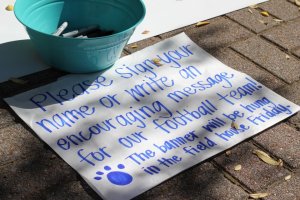 Please sign your
name or write an
encouraging message
for our football team.
The banner will be hung
in the field house Friday.